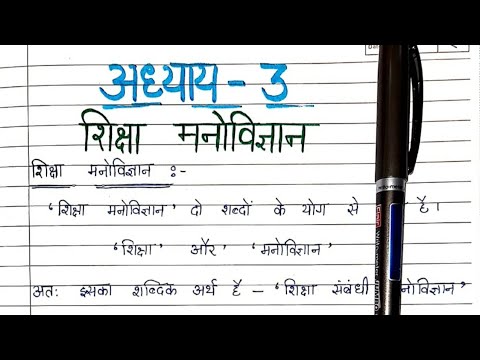 अध्याय - 3
शिक्षा मनोविज्ञान
शिक्षा मनोविज्ञान :-
'शिक्षा मनोविज्ञान' दो शब्दों के योग से है।
'शिक्षा' और 'मनोविज्ञान'
अतः इसका शब्दिक अर्थ है - 'शिक्षा संबंधी नोविज्ञान'